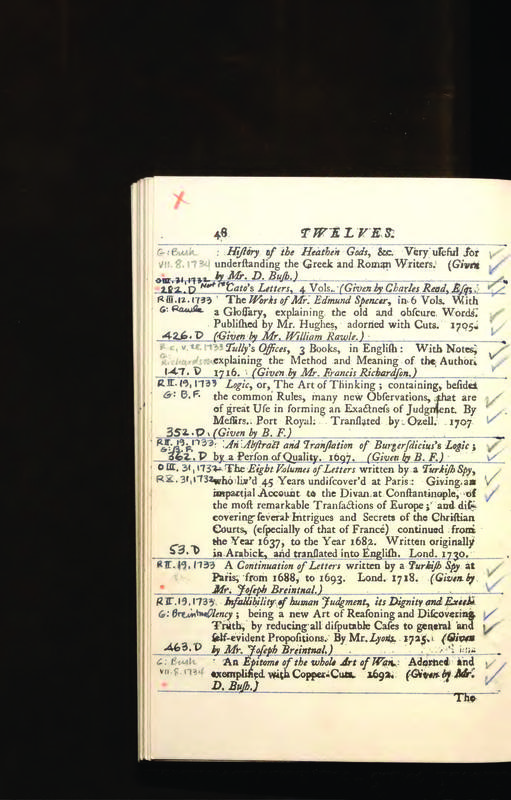 X
48 TWELVES.
G: Bush : Hiſtory of the Heathen Gods, &c. Very uſeful for
VII. 8. 1734 underſtanding the Greek and Roman Writers. (Given
by Mr. D. Buſh.)
O III. 31, 1732
282. D Cato's Letters, 4 Vols. (Given by Charles Read, Eſq;
R III. 12. 1733 The Works of Mr. Edmund Spencer, in 6 Vols. With
G: Rawle a Gloſſary, explaining the old and obſcure Words.
Publiſhed by Mr. Hughes, adorned with Cuts. 1705.
426. D (Given by Mr. William Rawle.)
Tully's Offices, 3 Books, in Engliſh: With Notes,
Richardson explaining the Method and Meaning of the Author.
147. D 1716. (Given by Mr. Francis Richardſon.)
R II. 19, 1733 Logic, or, The Art of Thinking; containing, beſides
G: B. F. the common Rules, many new Obſervations, that are
of great Uſe in forming an Exactneſs of Judgment. By
Meſſrs. Port Royal: Tranſlated by Ozell. 1707
352. D. (Given by B. F.)
R II. 19. 1733. An Abſtract and Tranſlation of Burgerſdicius's Logic;
G: B. F.
362. D by a Perſon of Quality. 1697. (Given by B. F.)
O III. 31, 1732 The Eight Volumes of Letters written by a Turkiſh Spy,
R X. 31, 1732 who liv'd 45 Years undiſcover'd at Paris: Giving an
impartial Account to the Divan at Conſtantinople, of
the moſt remarkable Tranſactions of Europe; and diſ-
covering ſeveral Intrigues and Secrets of the Chriſtian
Courts, (eſpecially of that of France) continued from
the Year 1637, to the Year 1682. Written originally
53. D in Arabick, and tranſlated into Engliſh. Lond. 1730.
R II. 19. 1733 A Continuation of Letters written by a Turkiſh Spy at
Paris, from 1688, to 1693. Lond. 1718. (Given by
Mr. Joſeph Breintnal.)
R II. 19, 1733. Infallibility of human Judgment, its Dignity and Excel-
G: Breintnal lency; being a new Art of Reaſoning and Diſcovering
Truth, by reducing all diſputable Caſes to general and
ſelf-evident Propoſitions. By Mr. Lyons. 1725. (Given
463. D by Mr. Joſeph Breintnal.)
G: Bush An Epitome of the whole Art of War. Adorned and
VII. 8. 1734 exemplified with Copper-Cuts. 1692. (Given by Mr.
D. Buſh.)
The